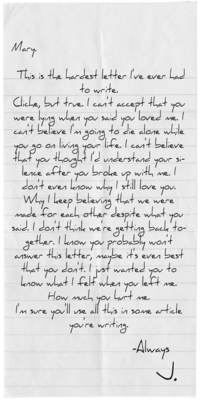 Mary.
This is the hardest letter I've ever had
to write.
Cliche, but true. I can't accept that you
were lying when you said you loved me. I
can't believe I'm going to die alone while
you go on living your life. I can't believe
that you thought I'd understand your si-
lence after you broke up with me. I
don't even know why I still love you.
Why I keep believing that we were
made for each other despite what you
said. I don't think we're getting back to-
gether. I know you probably won't
answer this letter, maybe it's even best
that you don't. I just wanted you to
know what I felt when you left me.
How much you hurt me.
I'm sure you'll use all this in some article
you're writing.
-Always
J.